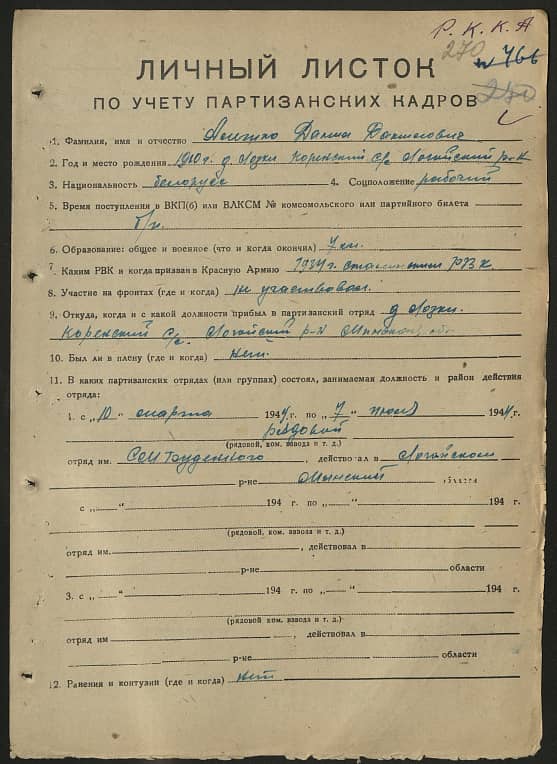 Р. К. К. А
270 № 466
ЛИЧНЫЙ ЛИСТОК
ПО УЧЕТУ ПАРТИЗАНСКИХ КАДРОВ
1. Фамилия, имя и отчество
2. Год и место рождения 1910 г. д. Козки Коренский с/с Логойский р-н
3. Национальность белорус 4. Соцположение рабочий
5. Время поступления в ВКП(б) или ВЛКСМ № комсомольского или партийного билета
б/п.
6. Образование: общее и военное (что и когда окончил) 7 кл.
7. Каким РВК и когда призван в Красную Армию 1934 г. Сталинским РВК
8. Участие на фронтах (где и когда) не участвовал.
9. Откуда, когда и с какой должности прибыл в партизанский отряд д. Козки.
Коренский с/с. Логойский р-н Минской обл.
10. Был ли в плену (где и когда) нет.
11. В каких партизанских отрядах (или группах) состоял, занимаемая должность и район действия
отряда:
1. с „10" марта 1944 г. по „7" июля 1944 г.
рядовой
(рядовой, ком. взвода и т. д.)
отряд им. С.М. Буденного, действовал в Логойском
р-не Минский области
с „ " 194 г. по „ " 194 г.
(рядовой, ком. взвода и т. д.)
отряд им. , действовал в
р-не области
3. с „ " 194 г. по „ " 194 г.
(рядовой, ком. взвода и т. д.)
отряд им , действовал в
р-не области
12. Ранения и контузии (где и когда) нет